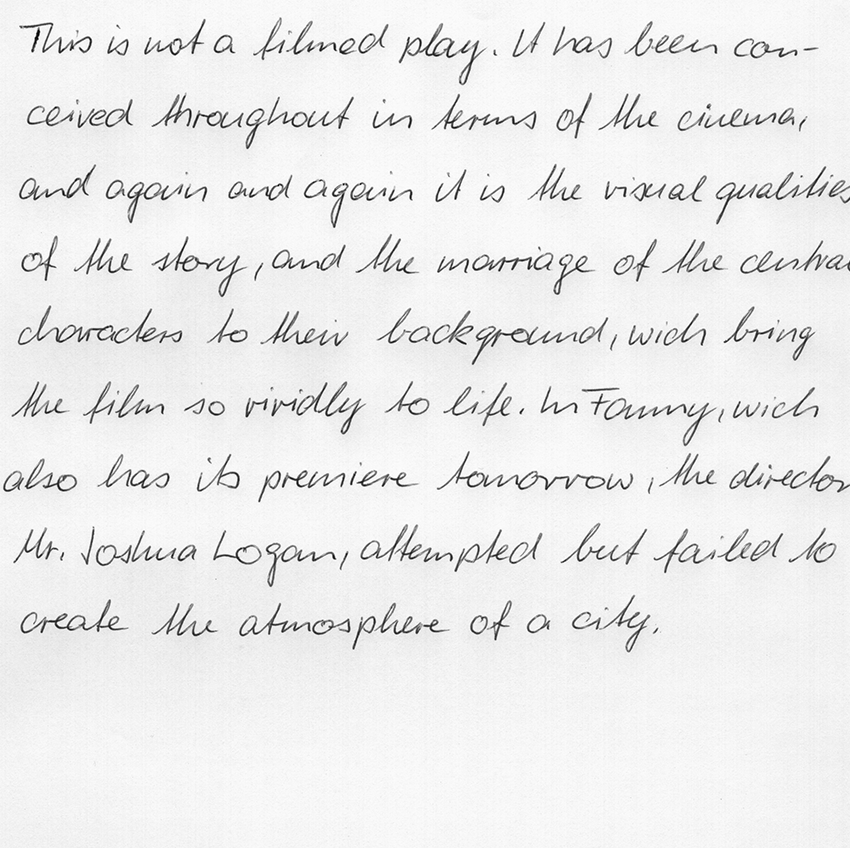 This is not a filmed play. It has been con-
ceived throughout in terms of the cinema,
and again and again it is the visual qualities
of the story, and the marriage of the central
characters to their background, wich bring
the film so vividly to life. In Fanny, wich
also has its premiere tomorrow, the director
Mr. Joshua Logan, attempted but failed to
create the atmosphere of a city.